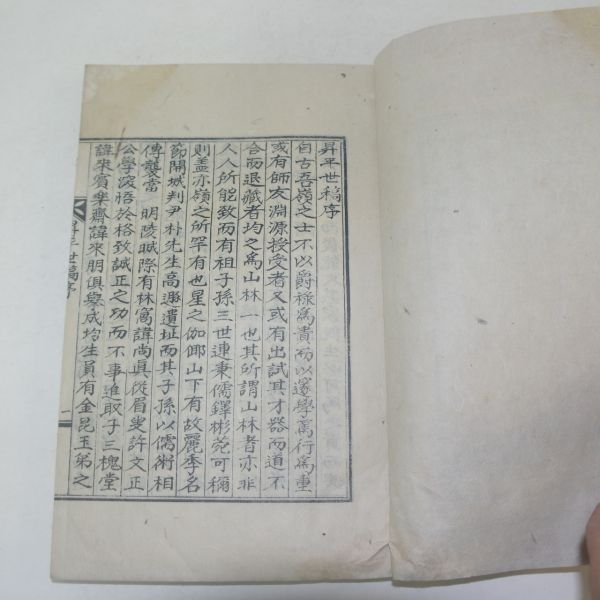 昇平世稿序
自古吾嶺之士不以爵祿爲貴而以邃學篤行爲重
或有師友淵源授受者又或有出試其才器而道不
合而退藏者均之爲山林一也其所謂山林者亦非
人人所能致而有祖子孫三世連秉儒鐸彬菀可稱
則盖亦嶺之所罕有也星之伽倻山下有故麗季名
節開城判尹朴先生高遯遺址而其子孫以儒術相
傳襲當 明陵晠際有林寓諱尚眞從眉叟許文正
公學深悟於格致誠正之功而不事進取子三槐堂
諱來賓樂齋諱來朋俱擧成均生員有金昆玉弟之
昇平世稿序
一